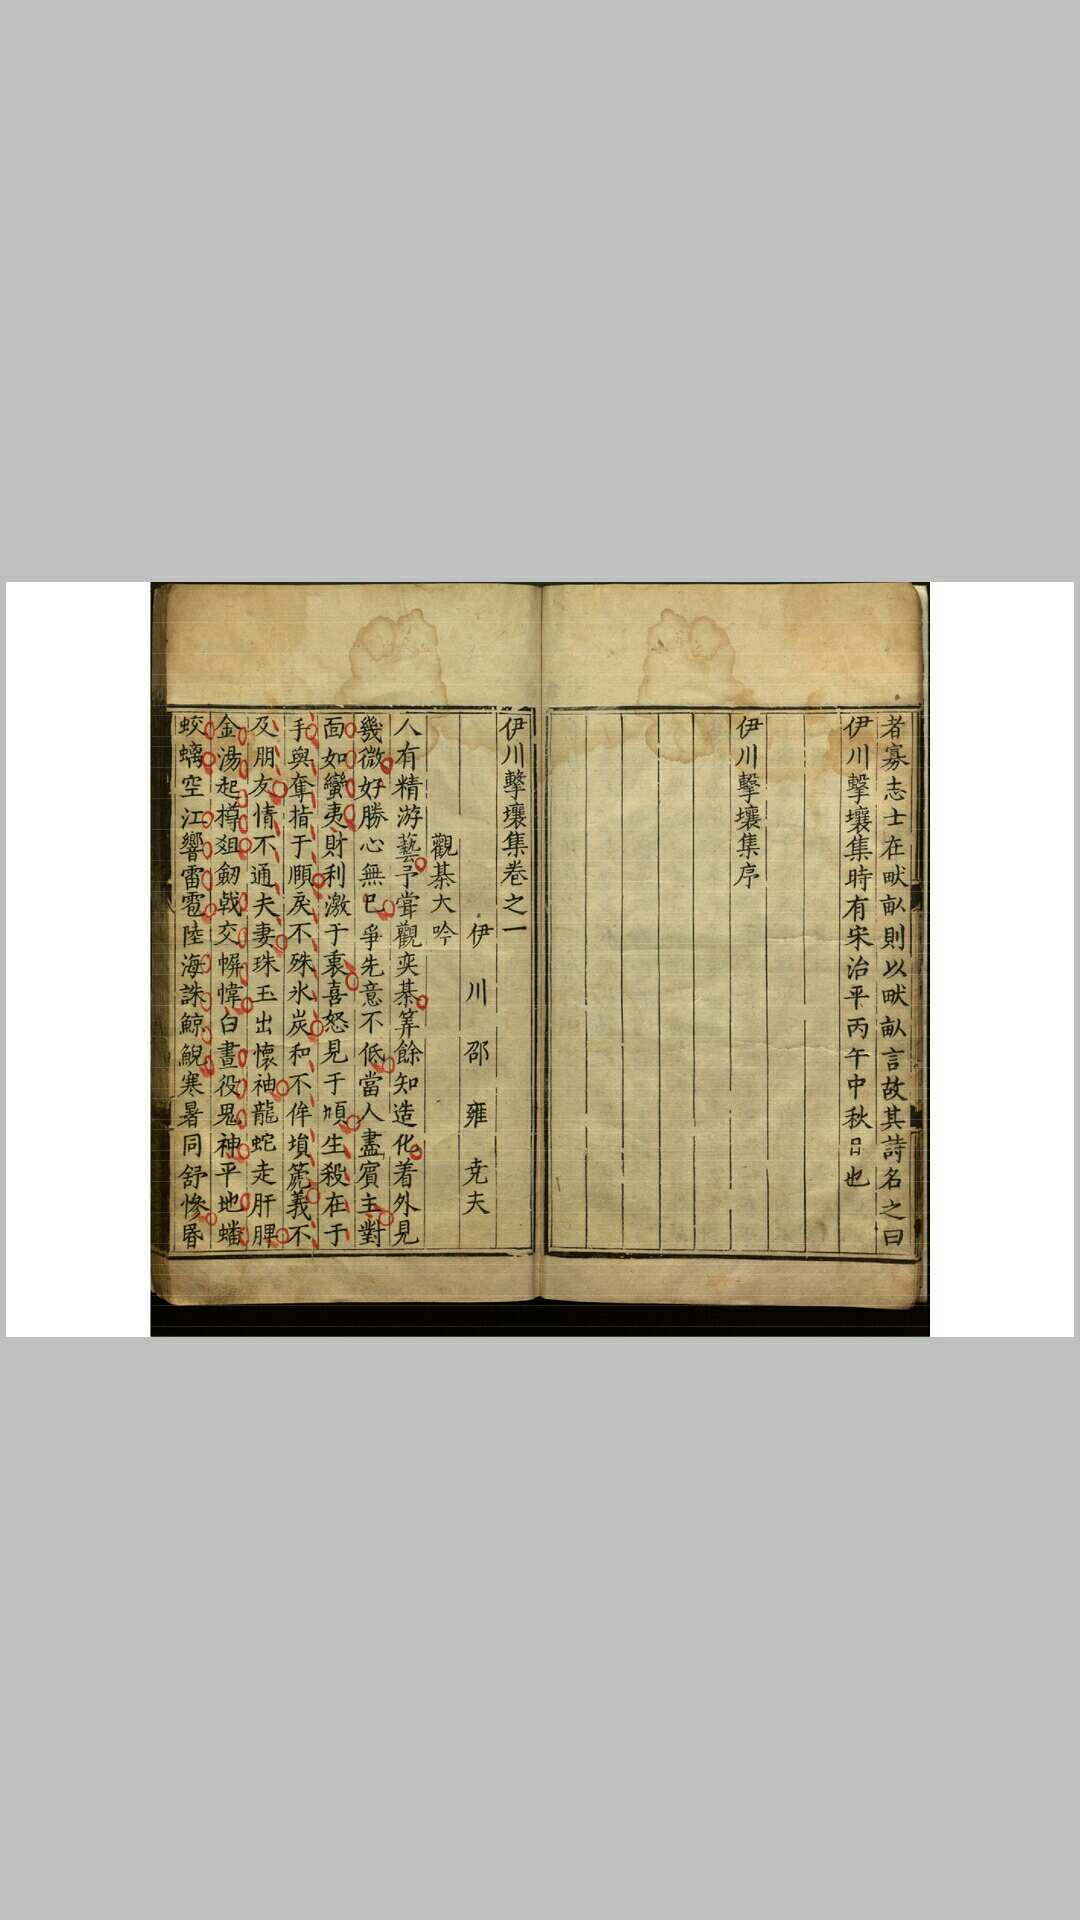 者寡志士在畎畝則以畎畝言故其詩名之曰
伊川擊壤集時有宋治平丙午中秋日也
伊川擊壤集序
伊川擊壤集卷之一
伊川邵雍尭夫
觀棊大吟
人有精游藝予甞觀奕棊筭餘知造化着外見
幾微好勝心無已爭先意不低當人盡賓主對
面如蠻夷財利激于衷喜怒見于頄生殺在于
手與奪指于順戾不殊氷炭和不侔塤箎義不
及朋友情不通夫妻珠玉出懷袖龍蛇走肝脾
金湯起樽爼劒戟交幈幃白晝役鬼神平地蟠
蛟螭空江響雷雹陸海誅鯨鯢寒暑同舒慘昏